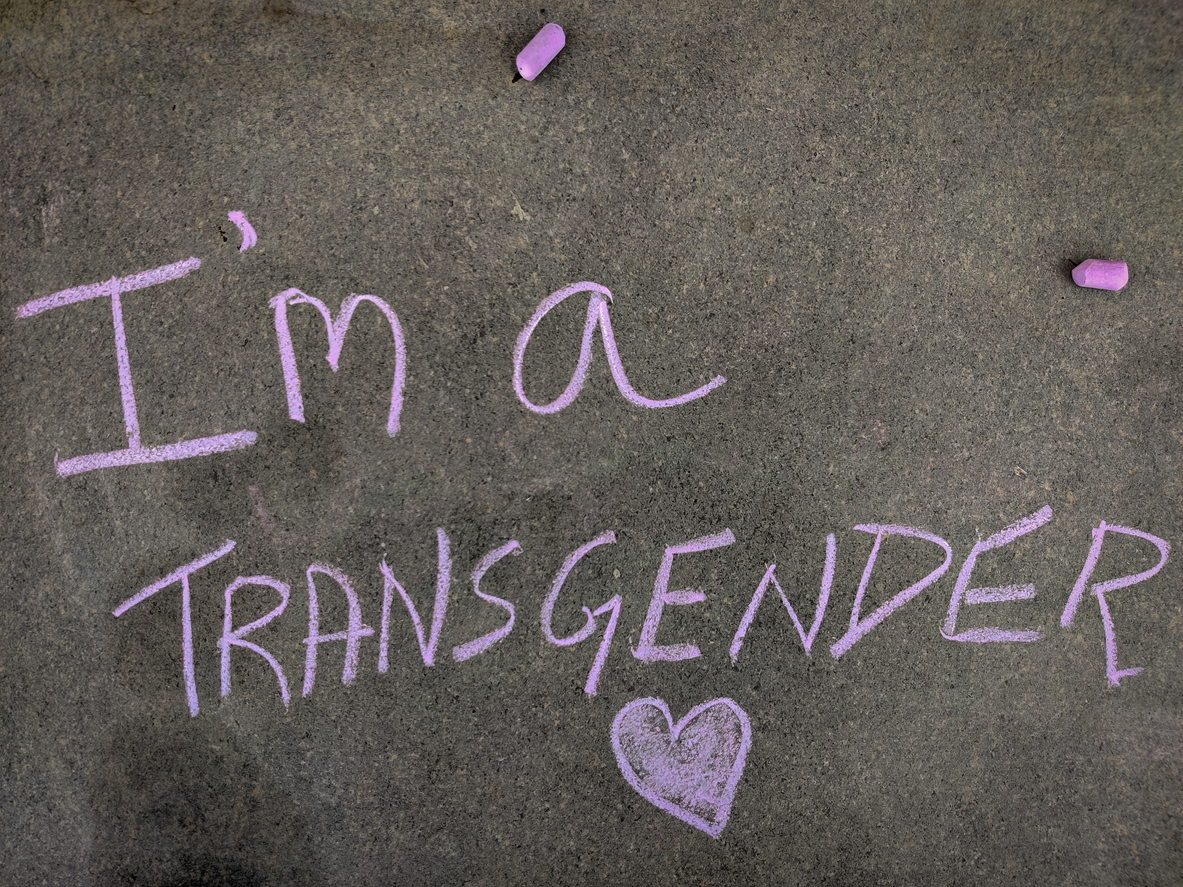 I'm a
TRANSGENDER